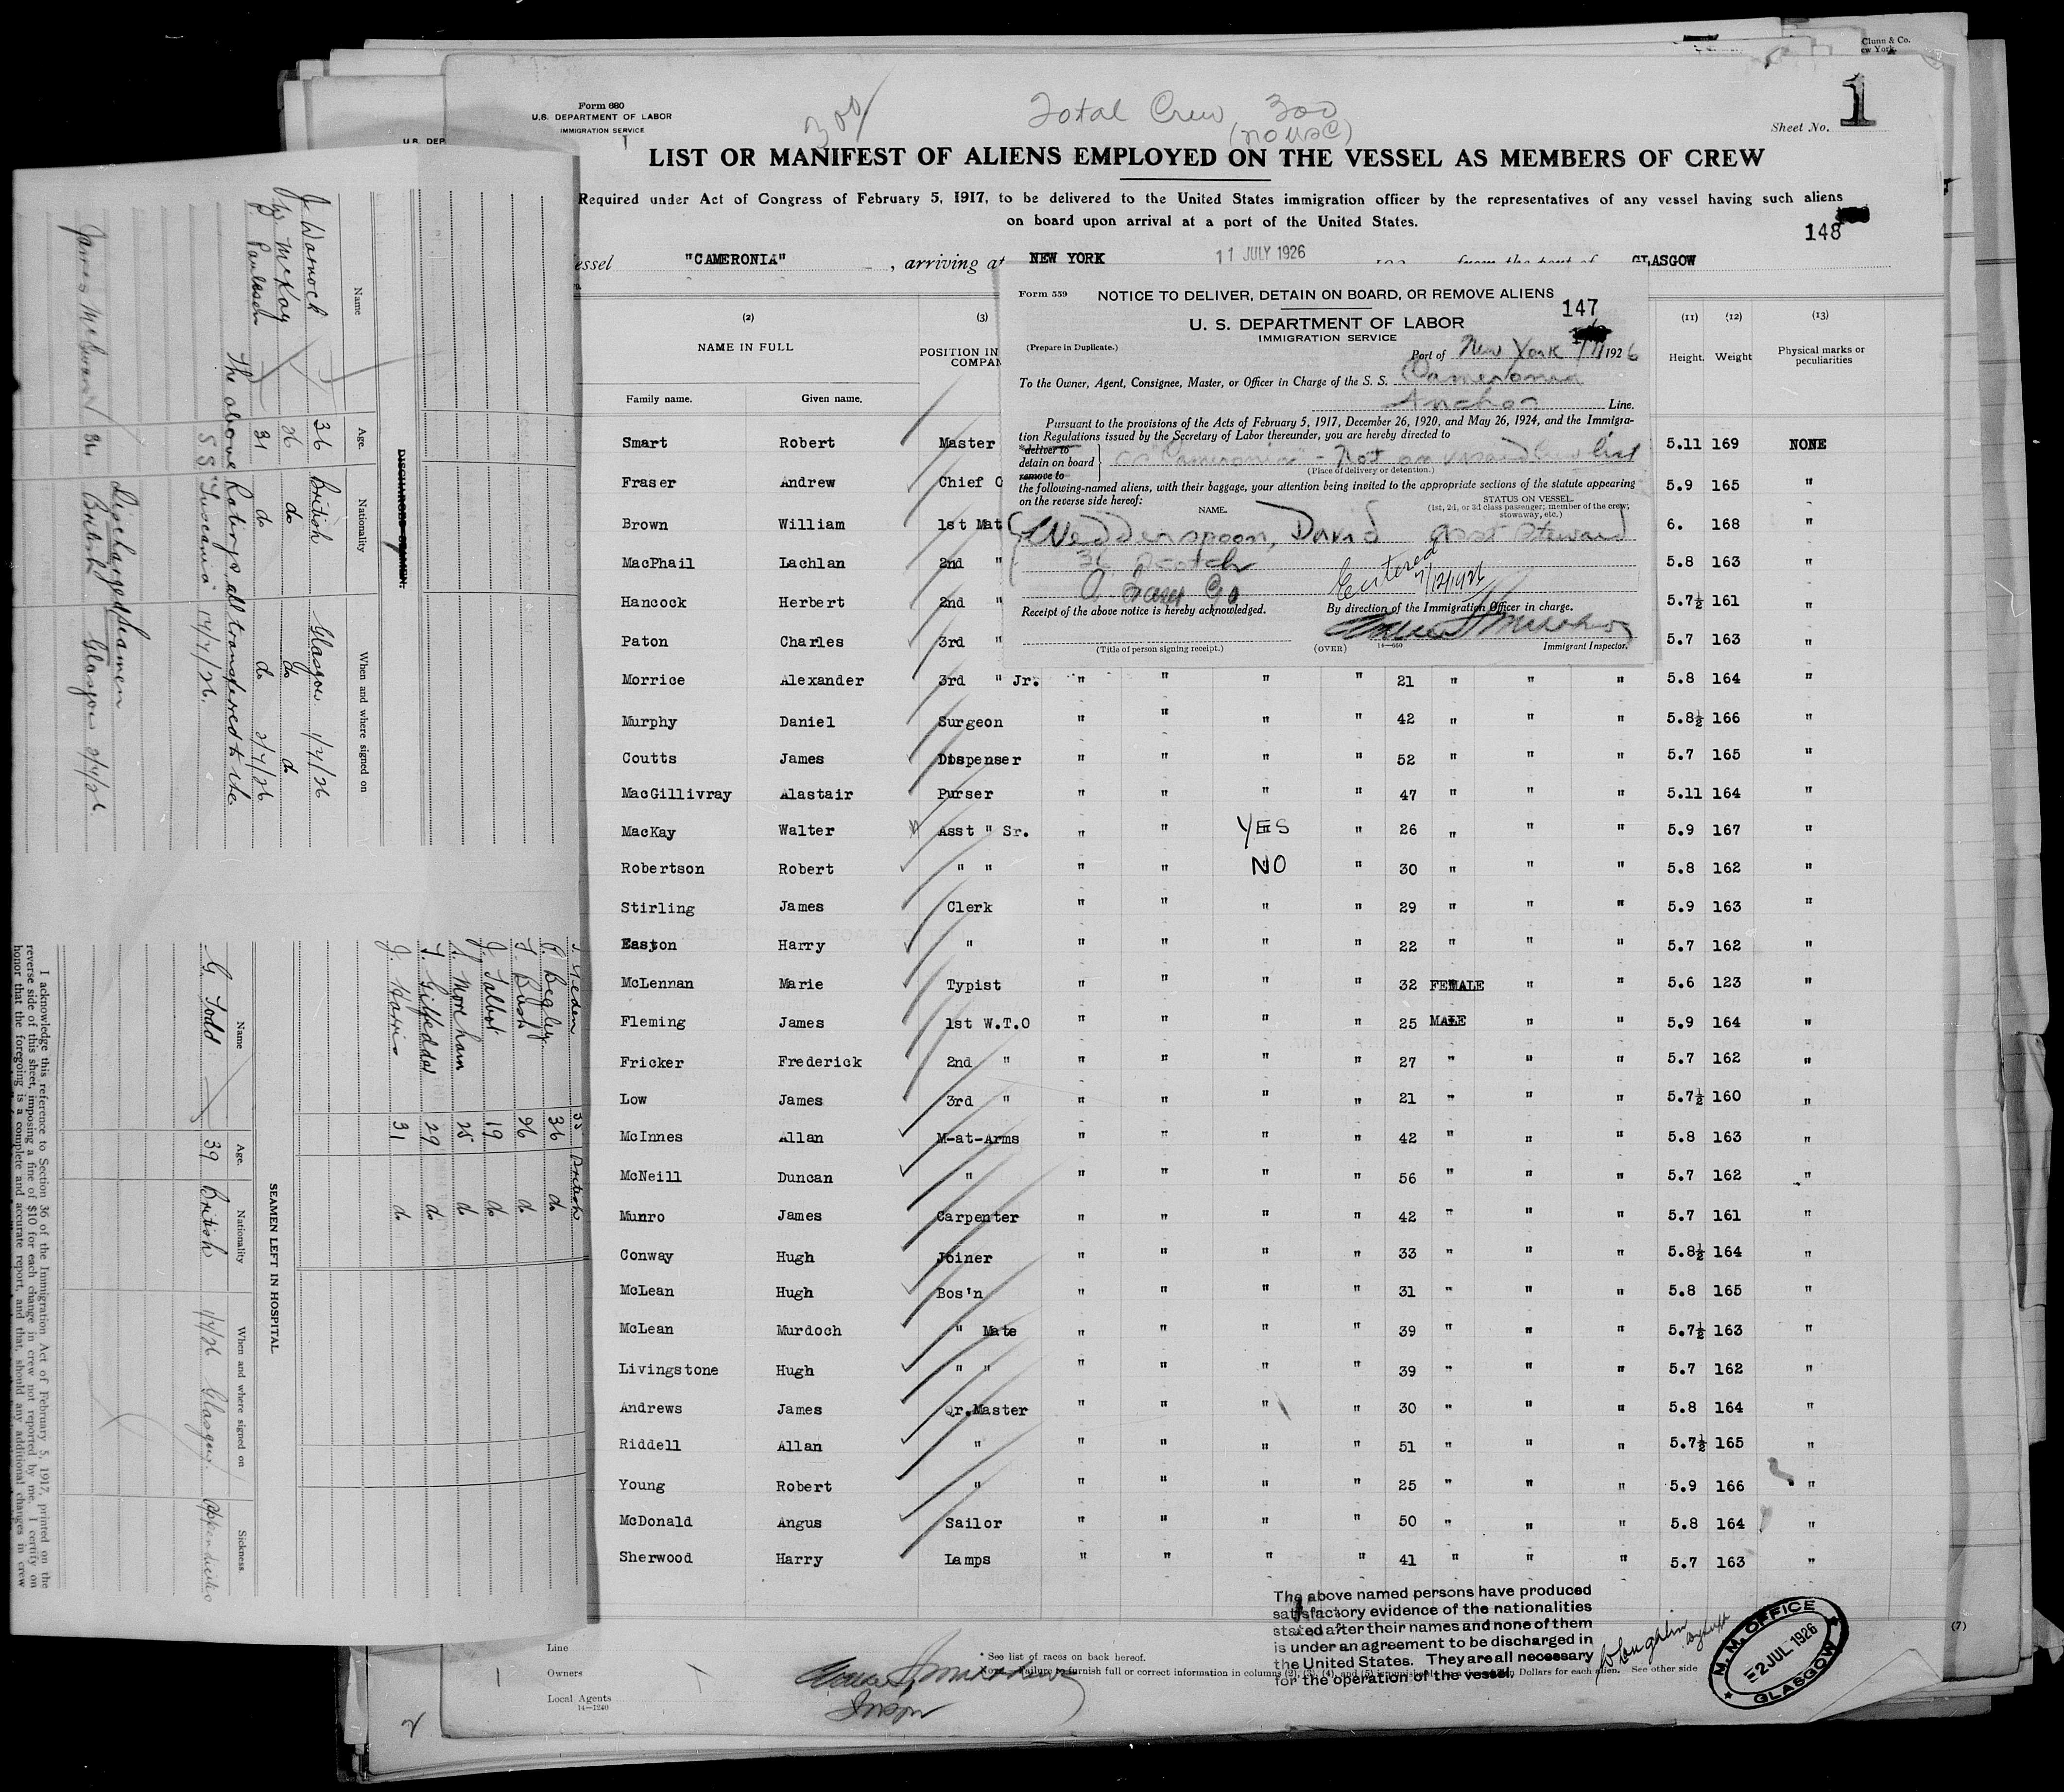 Clunn & Co.
ew York
Form 680
U.S. DEPARTMENT OF LABOR
IMMIGRATION SERVICE
300
Total Crew 300
(no USC)
Sheet No. 1
LIST OR MANIFEST OF ALIENS EMPLOYED ON THE VESSEL AS MEMBERS OF CREW
Required under Act of Congress of February 5, 1917, to be delivered to the United States immigration officer by the representatives of any vessel having such aliens
on board upon arrival at a port of the United States.
148
essel "CAMERONIA" , arriving at NEW YORK 11 JULY 1926 from the port of GLASGOW
(2) (3) (11) (12) (13)
NAME IN FULL POSITION IN Height. Weight Physical marks or
COMPAN peculiarities
Family name. Given name.
Form 559 NOTICE TO DELIVER, DETAIN ON BOARD, OR REMOVE ALIENS
147
U. S. DEPARTMENT OF LABOR
IMMIGRATION SERVICE
(Prepare in Duplicate.) Port of New York 1926
To the Owner, Agent, Consignee, Master, or Officer in Charge of the S. S. Cameronia
Anchor Line.
Pursuant to the provisions of the Acts of February 5, 1917, December 26, 1920, and May 26, 1924, and the Immigra-
tion Regulations issued by the Secretary of Labor thereunder, you are hereby directed to
*deliver to
detain on board } ss "Cameronia" - Not on visaed crew list
remove to (Place of delivery or detention.)
the following-named aliens, with their baggage, your attention being invited to the appropriate sections of the statute appearing
on the reverse side hereof:
NAME. STATUS ON VESSEL.
(1st, 2d, or 3d class passenger; member of the crew;
stowaway, etc.)
Wedderspoon, David Asst Steward
36 Scotch
Entered 7/12/1926
Receipt of the above notice is hereby acknowledged. By direction of the Immigration Officer in charge.
(Title of person signing receipt.) (OVER) 14—660 Immigrant Inspector.
Smart Robert Master 5.11 169 NONE
Fraser Andrew Chief O 5.9 165 "
Brown William 1st Mat 6. 168 "
MacPhail Lachlan 2nd " 5.8 163 "
Hancock Herbert 2nd " 5.7½ 161 "
Paton Charles 3rd " 5.7 163 "
Morrice Alexander 3rd " Jr. " " " " 21 " " " 5.8 164 "
Murphy Daniel Surgeon " " " " 42 " " " 5.8½ 166 "
Coutts James Dispenser " " " " 52 " " " 5.7 165 "
MacGillivray Alastair Purser " " " " 47 " " " 5.11 164 "
MacKay Walter Asst " Sr. " " YES " 26 " " " 5.9 167 "
Robertson Robert " " " " NO " 30 " " " 5.8 162 "
Stirling James Clerk " " " " 29 " " " 5.9 163 "
Easton Harry " " " " " 22 " " " 5.7 162 "
McLennan Marie Typist " " " " 32 FEMALE " " 5.6 123 "
Fleming James 1st W.T.O " " " " 25 MALE " " 5.9 164 "
Fricker Frederick 2nd " " " " " 27 " " " 5.7 162 "
Low James 3rd " " " " " 21 " " " 5.7½ 160 "
McInnes Allan M-at-Arms " " " " 42 " " " 5.8 163 "
McNeill Duncan " " " " " 56 " " " 5.7 162 "
Munro James Carpenter " " " " 42 " " " 5.7 161 "
Conway Hugh Joiner " " " " 33 " " " 5.8½ 164 "
McLean Hugh Bos'n " " " " 31 " " " 5.8 165 "
McLean Murdoch " Mate " " " " 39 " " " 5.7½ 163 "
Livingstone Hugh " " " " " " 39 " " " 5.7 162 "
Andrews James Qr.Master " " " " 30 " " " 5.8 164 "
Riddell Allan " " " " " 51 " " " 5.7½ 165 "
Young Robert " " " " " 25 " " " 5.9 166 "
McDonald Angus Sailor " " " " 50 " " " 5.8 164 "
Sherwood Harry Lamps " " " " 41 " " " 5.7 163 "
The above named persons have produced
satisfactory evidence of the nationalities
stated after their names and none of them
is under an agreement to be discharged in
the United States. They are all necessary
for the operation of the vessel.
M. M. OFFICE
2 JUL 1926
GLASGOW
(7)
Line
Owners
Local Agents
14—1240
* See list of races on back hereof.
Failure to furnish full or correct information in columns (2), (3), (4), and (5) is Dollars for each alien. See other side
Inspr
U.S. DEP
DISCHARGED SEAMEN.
Name Age. Nationality When and where signed on
J. Warnock 36 British Glasgow 1/7/26
W. McKay 26 do do do
31 do do 2/7/26
The above Ratings all transferred to the
SS "Tuscania" 17/7/26.
Discharged Seamen
James 36 British Glasgow 2/7/26.
35 British
P. Begley 36 do
T. Bush 26 do
J. Talbot 19 do
25 do
T. Gilfedder 29 do
J. Harris 31 do
SEAMEN LEFT IN HOSPITAL
Name Age. Nationality When and where signed on Sickness.
G. Todd 39 British 1/7/26 Glasgow. Appendicitis
I acknowledge this reference to Section 36 of the Immigration Act of February 5, 1917, printed on the
reverse side of this sheet, imposing a fine of $10 for each change in crew not reported by me. I certify on
honor that the foregoing is a complete and accurate report, and that, should any additional changes in crew